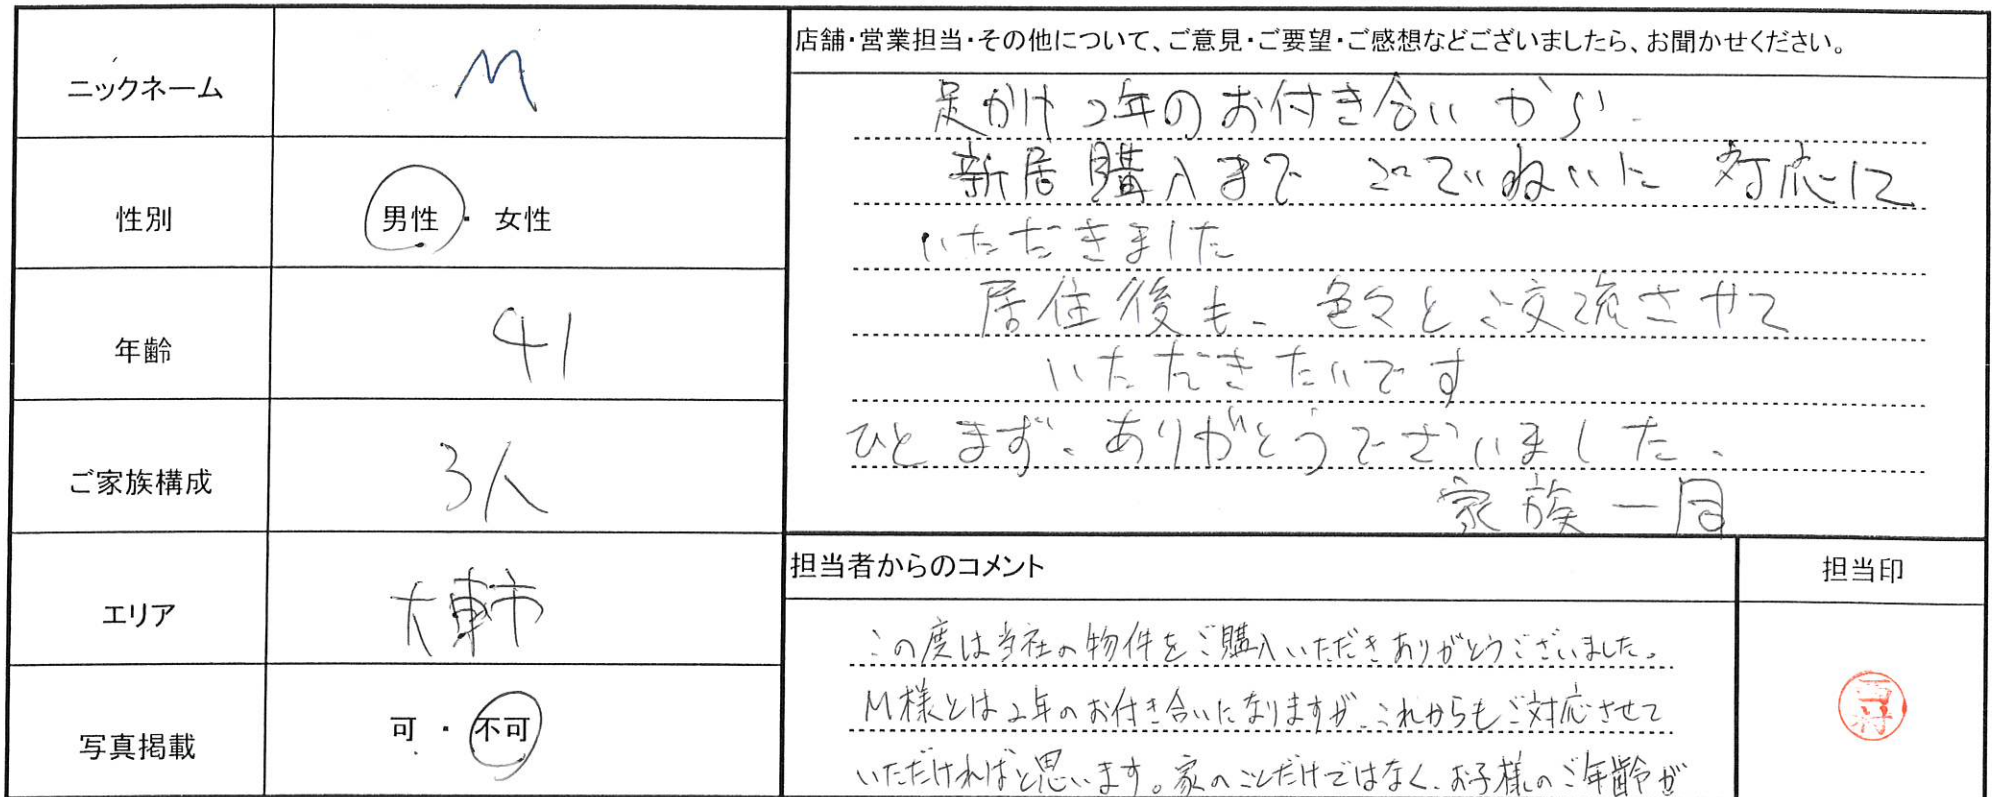 ニックネーム
M
性別
男性・女性
年齢
41
ご家族構成
3人
エリア
大東市
写真掲載
可・不可
店舗・営業担当・その他について、ご意見・ご要望・ご感想などございましたら、お聞かせください。
足かけ2年のお付き合いから
新居購入まで ごていねいに 対応に
いただきました
居住後も、色々とご交流させて
いただきたいです
ひとまず、ありがとうございました、
家族一同
担当者からのコメント
この度は当社の物件をご購入いただきありがとうございました。
M様とは2年のお付き合いになりますが、これからもご対応させて
いただければと思います。家のことだけではなく、お子様のご年齢が
担当印